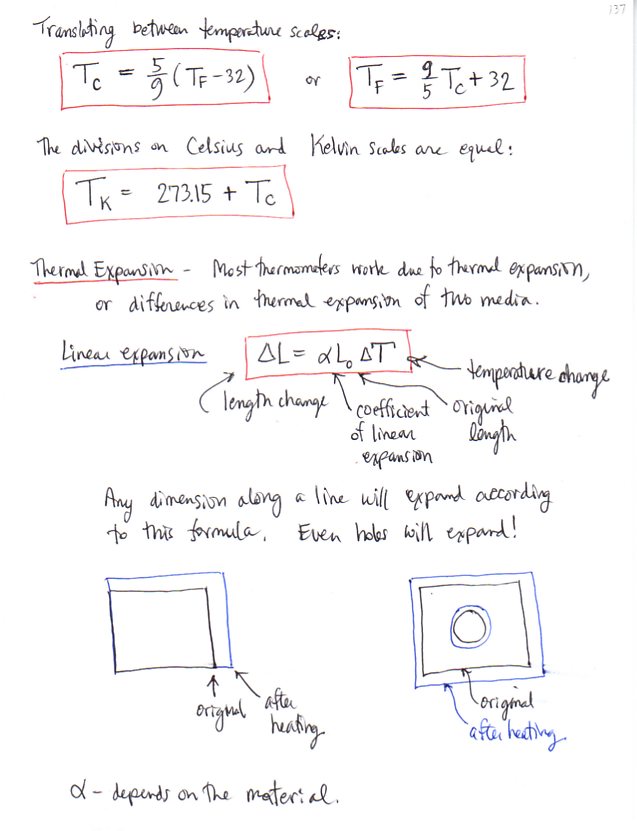 137
Translating between temperature scales:
T_C = 5/9 (T_F - 32) or T_F = 9/5 T_C + 32
The divisions on Celsius and Kelvin scales are equal:
T_K = 273.15 + T_C
Thermal Expansion - Most thermometers work due to thermal expansion,
or differences in thermal expansion of two media.
Linear expansion ΔL = αL₀ ΔT
temperature change
length change
coefficient of linear expansion
original length
Any dimension along a line will expand according
to this formula. Even holes will expand!
original
after heating
original
after heating.
α - depends on the material.